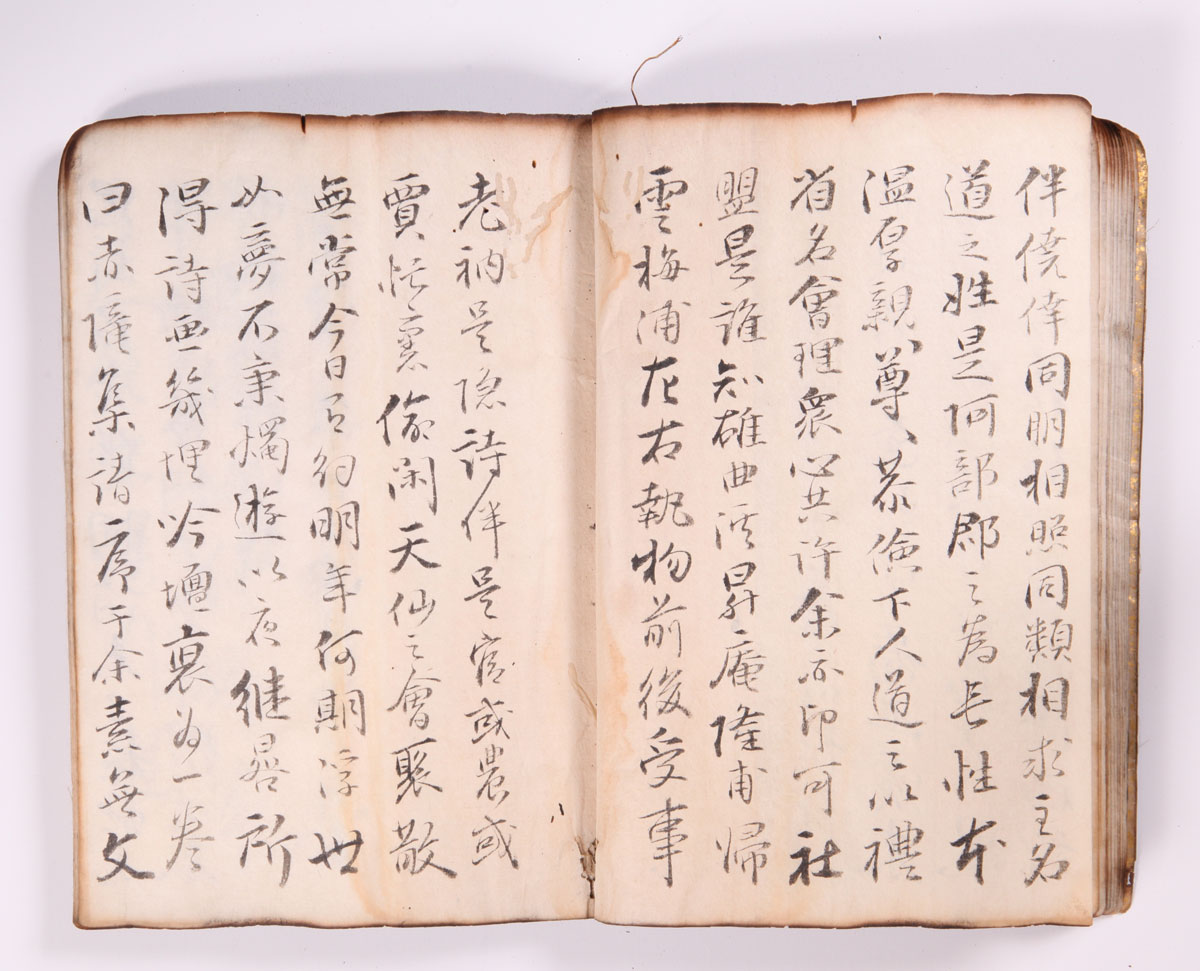 伴僥倖同明相照同類相求主名
道之姓是阿部郡之為長性本
溫厚親〻尊〻恭儉下人道之以禮
省名會理衆心共許余亦印可社
盟是誰知雄曲江昇庵隆甫帰
雲梅浦左右執物前後受事
老衲是隐詩伴是官或農或
賈忙裏偷閑天仙之會聚散
無常今日有約明年何期浮世
如夢不秉燭遊以夜継晷所
得詩画幾埋吟壇裏為一巻
曰赤集請序于余素無文